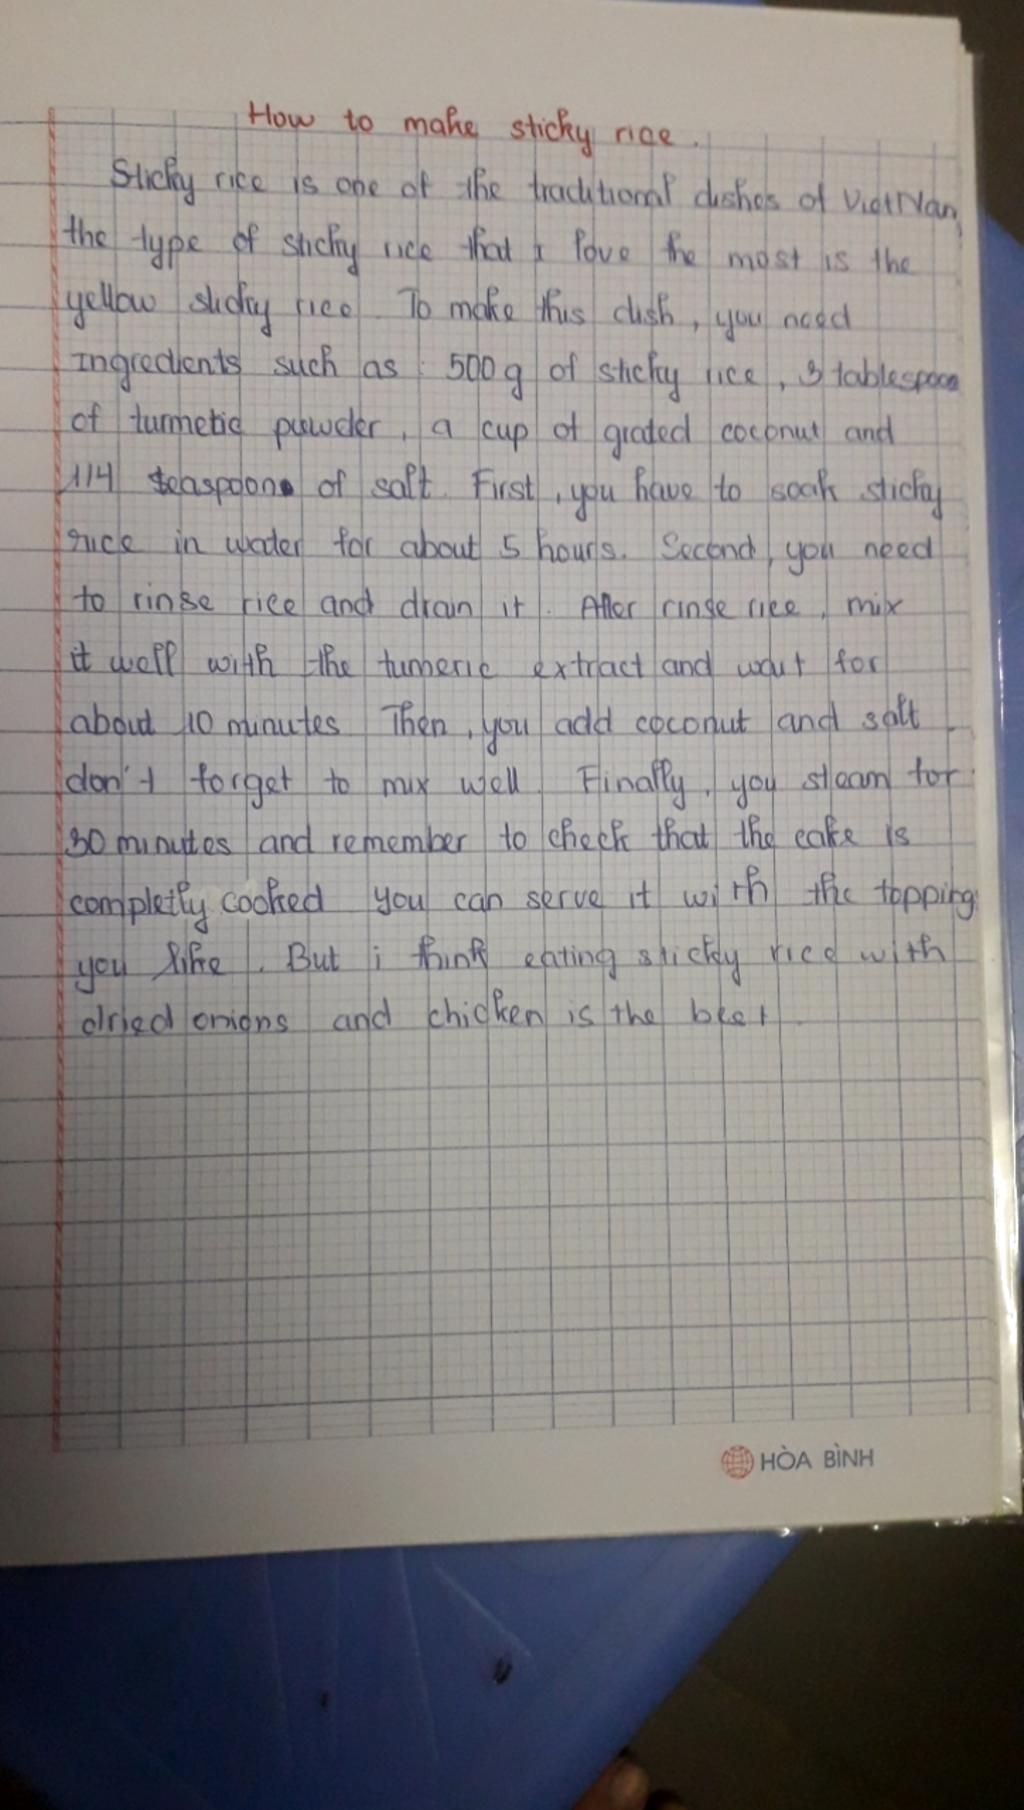 How to make sticky rice.
Sticky rice is one of the traditional dishes of VietNam,
the type of sticky rice that I love the most is the
yellow sticky rice. To make this dish, you need
Ingredients such as : 500g of sticky rice, 3 tablespoon
of turmetic powder, a cup of grated coconut and
1/4 teaspoon of salt. First, you have to soak sticky
rice in water for about 5 hours. Second, you need
to rinse rice and drain it. After rinse rice, mix
it well with the tumeric extract and wait for
about 10 minutes Then, you add coconut and salt
don't forget to mix well. Finally, you steam for
30 minutes and remember to check that the cake is
completly cooked you can serve it with the topping
you like. But i think eating sticky rice with
dried onions and chicken is the best.
HÒA BÌNH